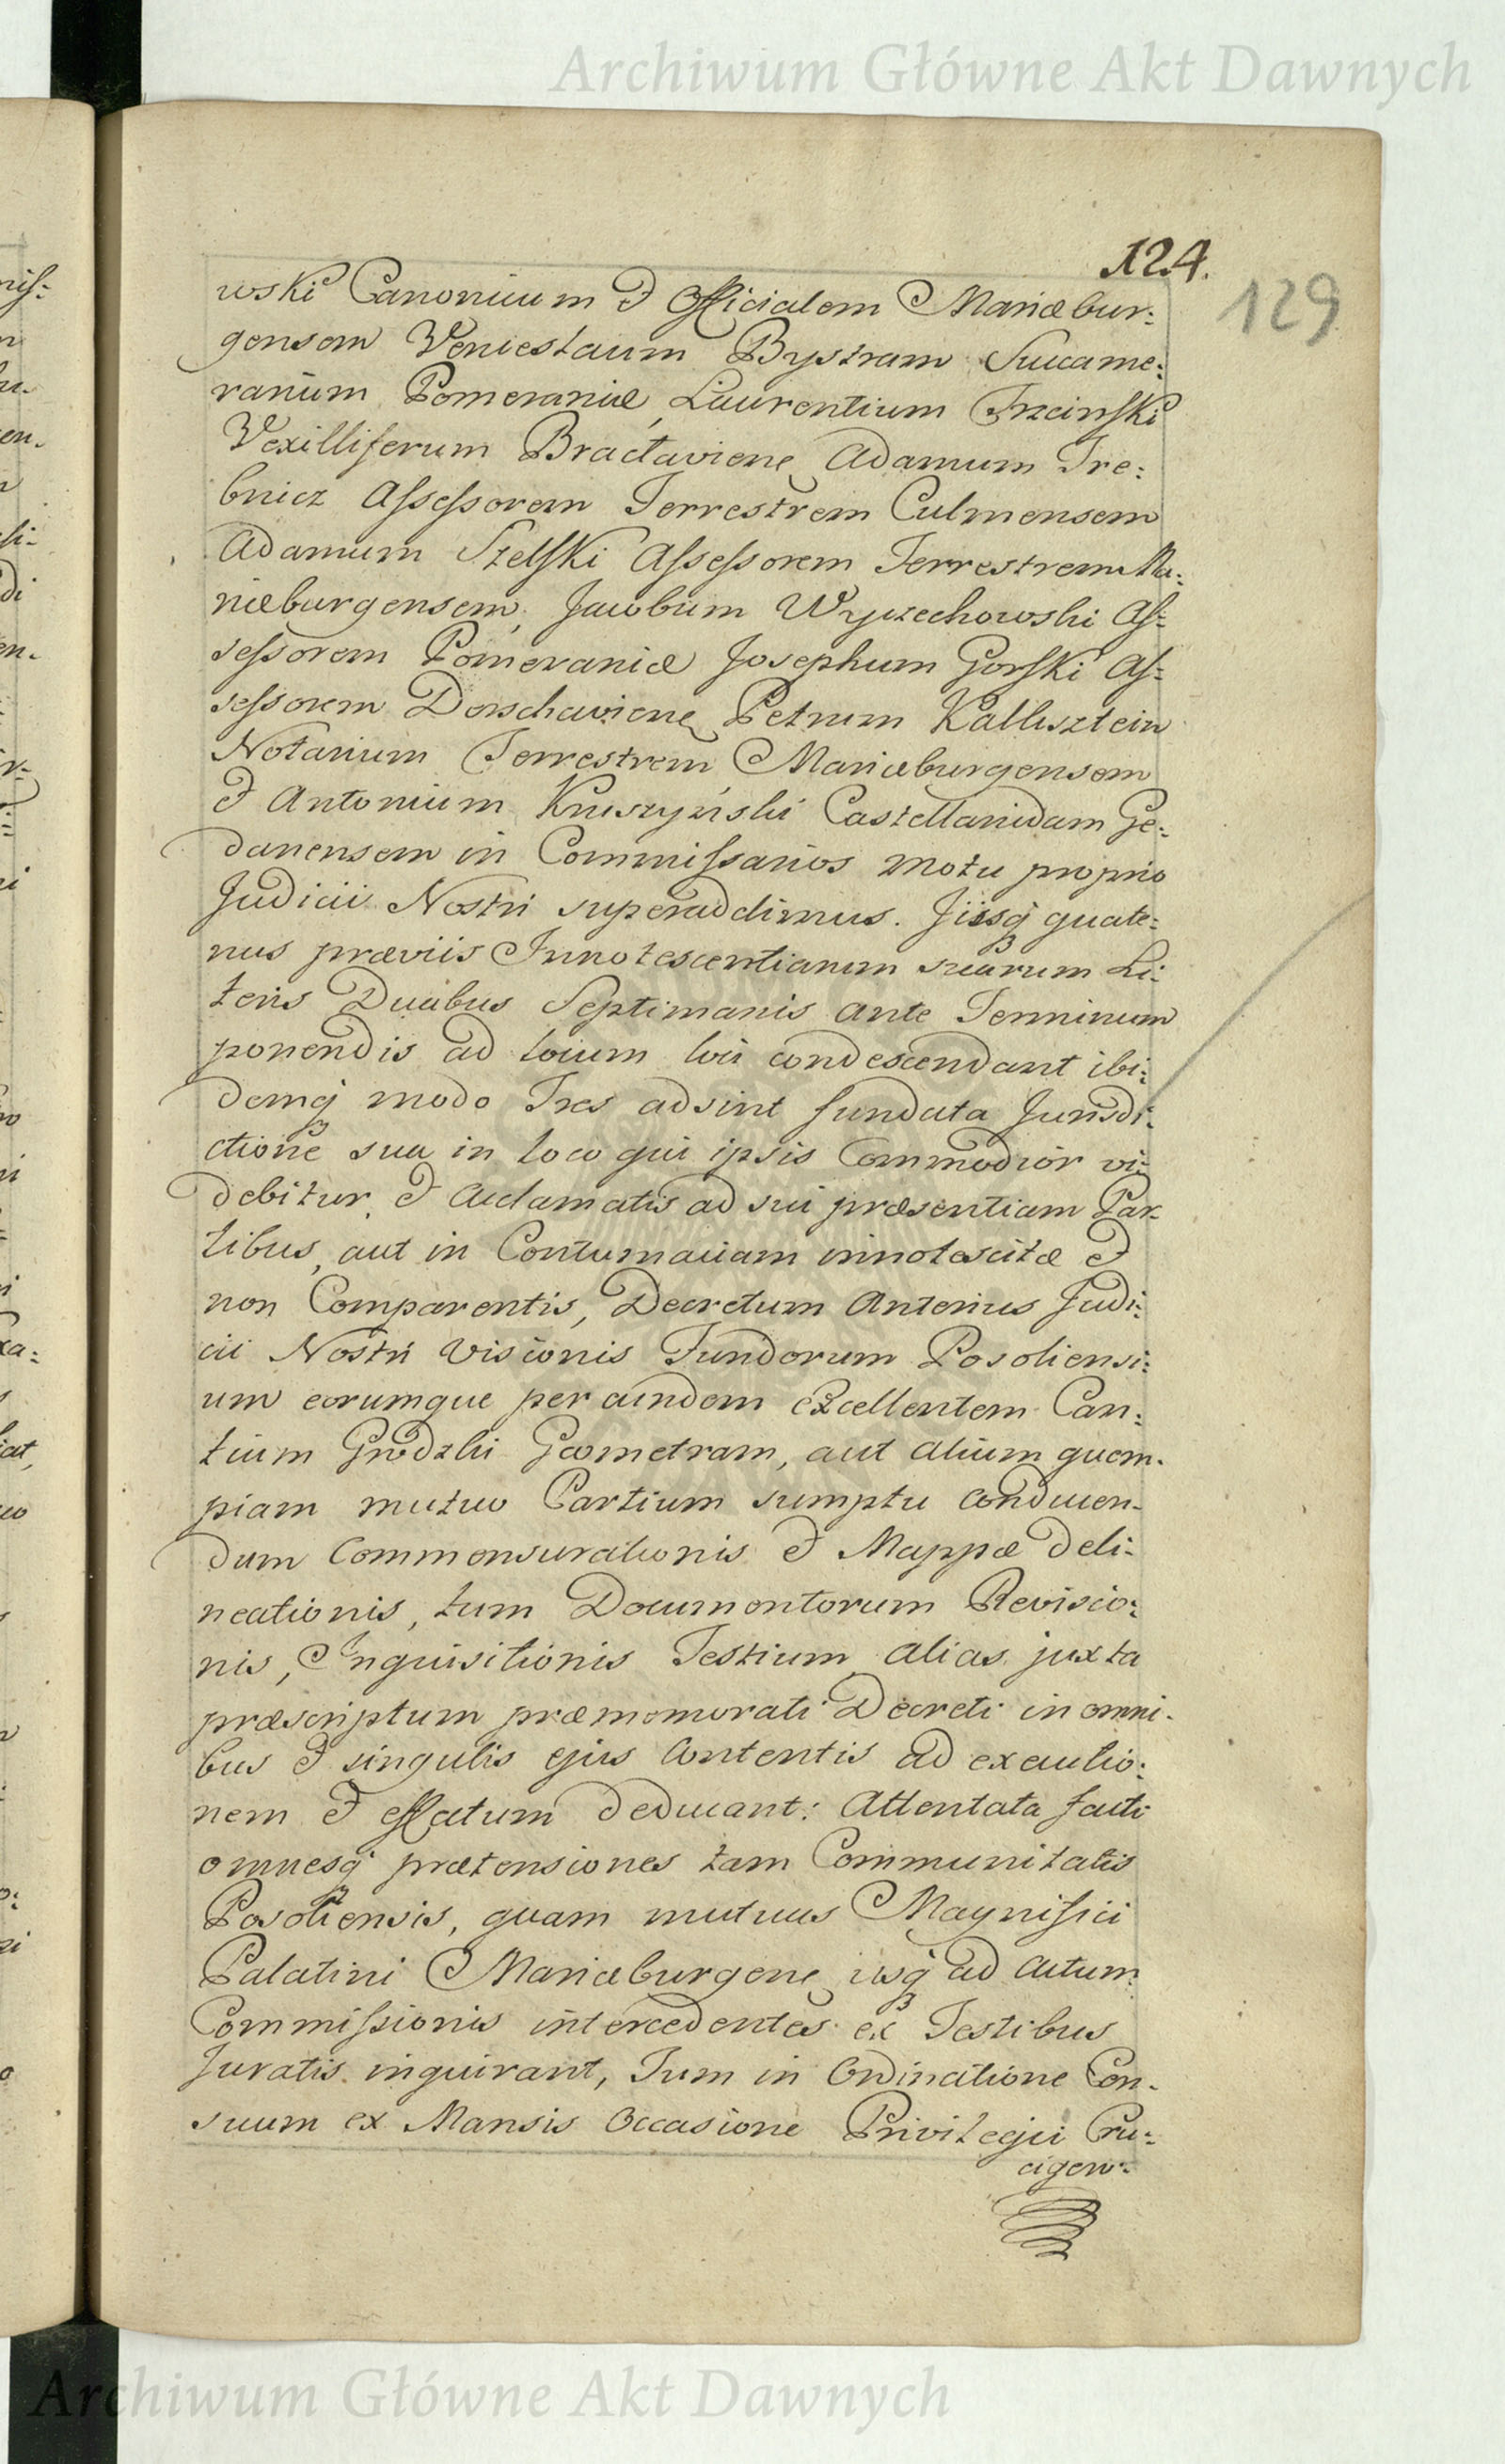 Archiwum Główne Akt Dawnych
124.
129
wski Canonicum & Officialem Mariæbur:
gensem Venceslaum Bystram Succame:
rarium Pomeraniæ, Laurentium Trzcinski
Vexilliferum Bractaviens Adamum Tre:
bnicz Assessorem Terrestrem Culmensem
Adamum Szelski Assessorem Terrestrem Ma:
riæburgensem, Jacobum Wyczechowski As:
sessorem Pomeraniæ Josephum Gorski As:
sessorem Dorschaviens Petrum Kallisztein
Notarium Terrestrem Mariæburgensem
& Antonium Kruszyński Castellanidam Ge:
danensem in Commissarios motu proprio
Judicii Nostri superaddimus. Jiisq quate:
nus præviis Innotescentiarum suarum Li:
teris Duabus Septimanis ante Terminum
ponendis ad locum loci condescendant ibi:
demq modo Tres adsint fundata Jurisdi:
ctione sua in loco qui ipsis Commodior vi:
debitur, & Acclamatis ad sui præsentiam Par:
tibus, aut in Contumaciam innotescitæ &
non Comparentis, Decretum Anterius Judi:
cii Nostri visionis Fundorum Posoliensi:
um eorumque per eundem excellentem Can:
tium Grodzki Geometram, aut alium quem:
piam mutuo Partium sumptu conducen:
dum Commensurationis & Mappæ deli:
neationis, tum Documentorum Revisio:
nis, Inquisitionis Testium, alias juxta
præscriptum præmemorati Decreti in omni:
bus & singulis ejus Contentis ad executio:
nem & effectum deducant: Attentata facti
omnesq prætensiones tam Communitatis
Posoliensis, quam mutuas Magnifici
Palatini Mariæburgens usq ad actum
Commissionis intercedentes ex Testibus
Juratis inquirant, Tum in Ordinatione Cen:
suum ex Mansis Occasione Privilegii Cru:
cigero:
Archiwum Główne Akt Dawnych